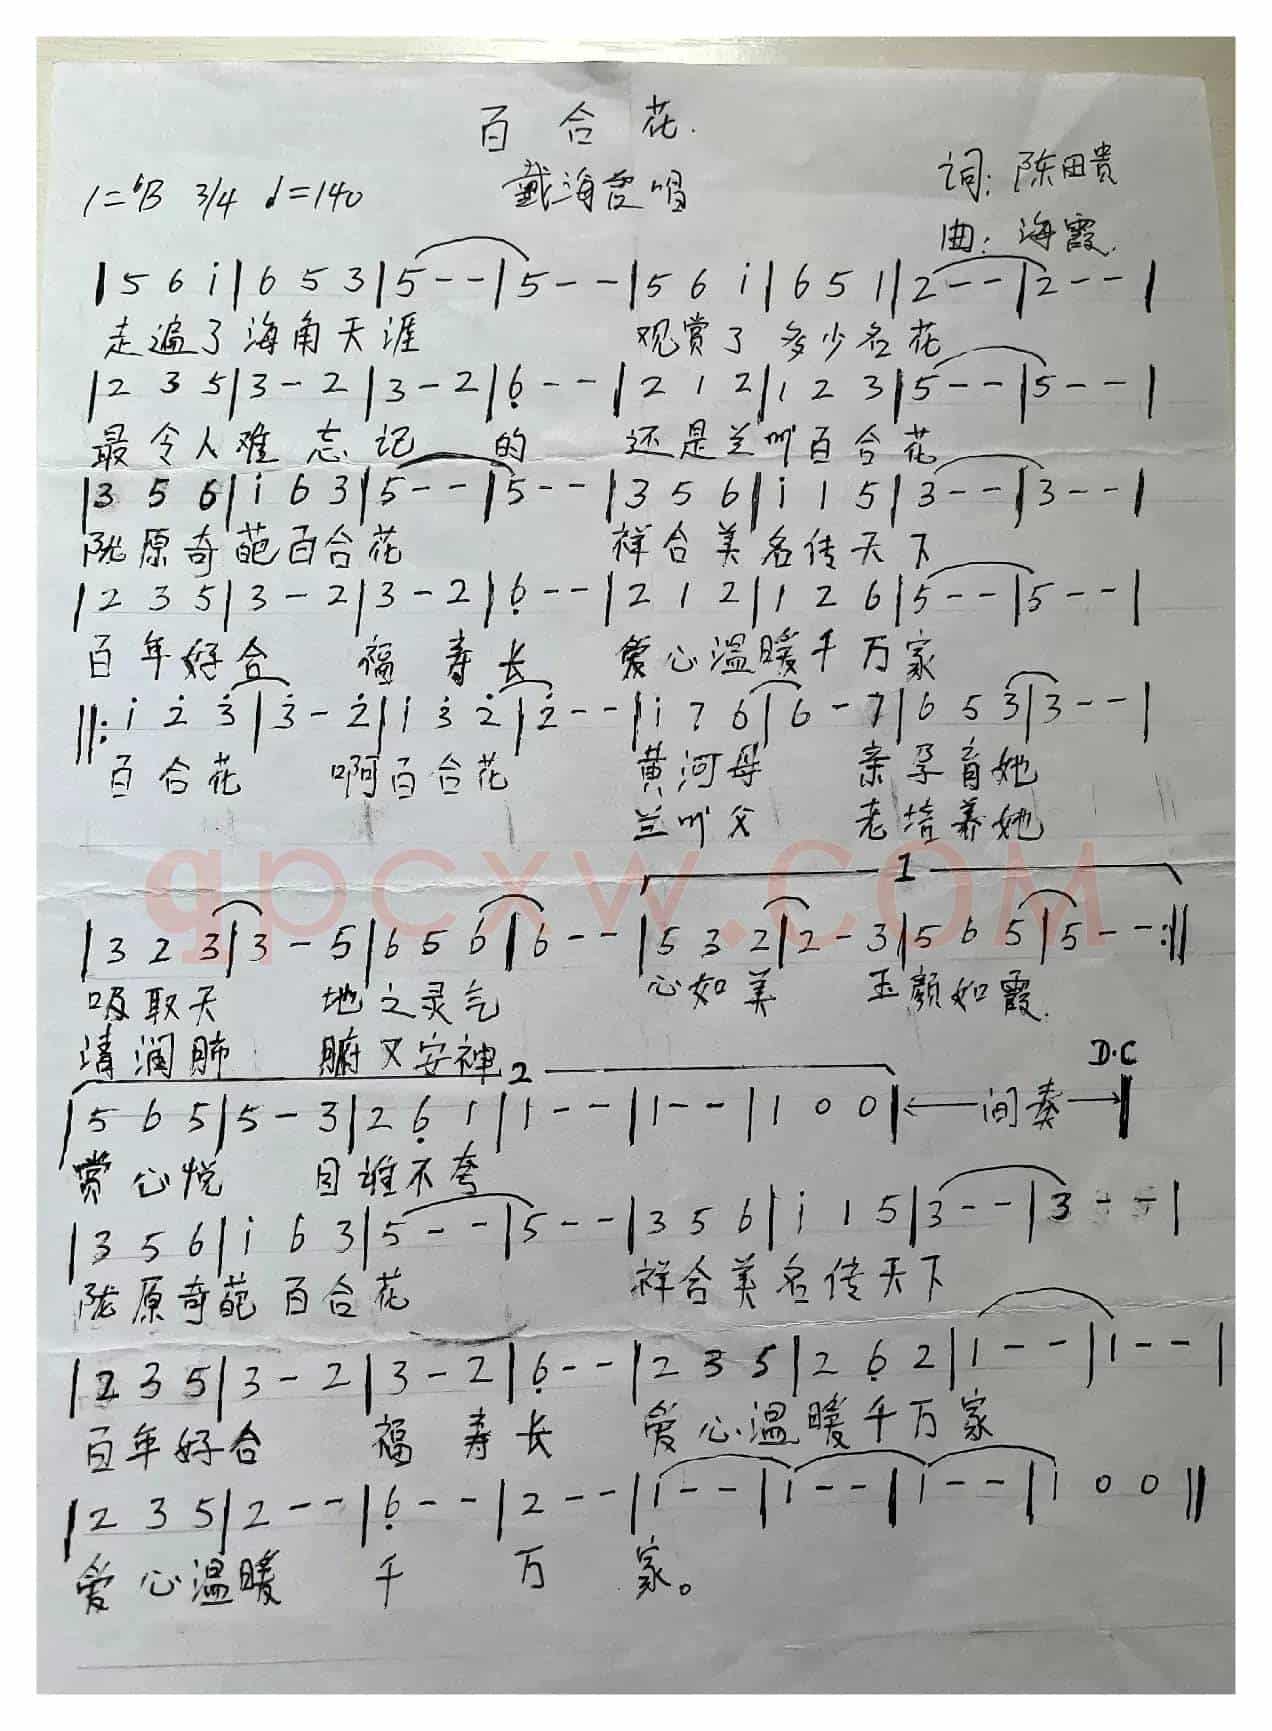 百合花.
戴海霞唱
词: 陈田贵
1=ᵇB 3/4 ♩=140
曲: 海霞.
|5 6 i|6 5 3|5--|5--|5 6 i|6 5 1|2--|2--|
走遍了海角天涯 观赏了多少名花
|2 3 5|3-2|3-2|6̣--|2 1 2|1 2 3|5--|5--|
最令人难忘记的 还是兰州百合花
|3 5 6|i 6 3|5--|5--|3 5 6|i 1 5|3--|3--|
陇原奇葩百合花 祥合美名传天下
|2 3 5|3-2|3-2|6̣--|2 1 2|1 2 6|5--|5--|
百年好合 福寿长 爱心温暖千万家
||:i 2̇ 3̇|3̇-2̇|i 3̇ 2̇|2̇--|i 7 6|6-7|6 5 3|3--|
百合花 啊百合花 黄河母 亲孕育她
兰州父 老培养她
1
|3 2 3|3-5|6 5 6|6--|5 3 2|2-3|5 6 5|5--:||
吸取天 地之灵气 心如美 玉颜如霞.
清润肺 腑又安神
2
D.C
|5 6 5|5-3|2 6̣ 1|1--|1--|1 0 0|←间奏→|
赏心悦 目谁不夸
|3 5 6|i 6 3|5--|5--|3 5 6|i 1 5|3--|3--|
陇原奇葩百合花 祥合美名传天下
|2 3 5|3-2|3-2|6̣--|2 3 5|2 6̣ 2|1--|1--|
百年好合 福寿长 爱心温暖千万家
|2 3 5|2--|6̣--|2--|1--|1--|1--|1 0 0||
爱心温暖 千 万 家。
qpcxw.COM